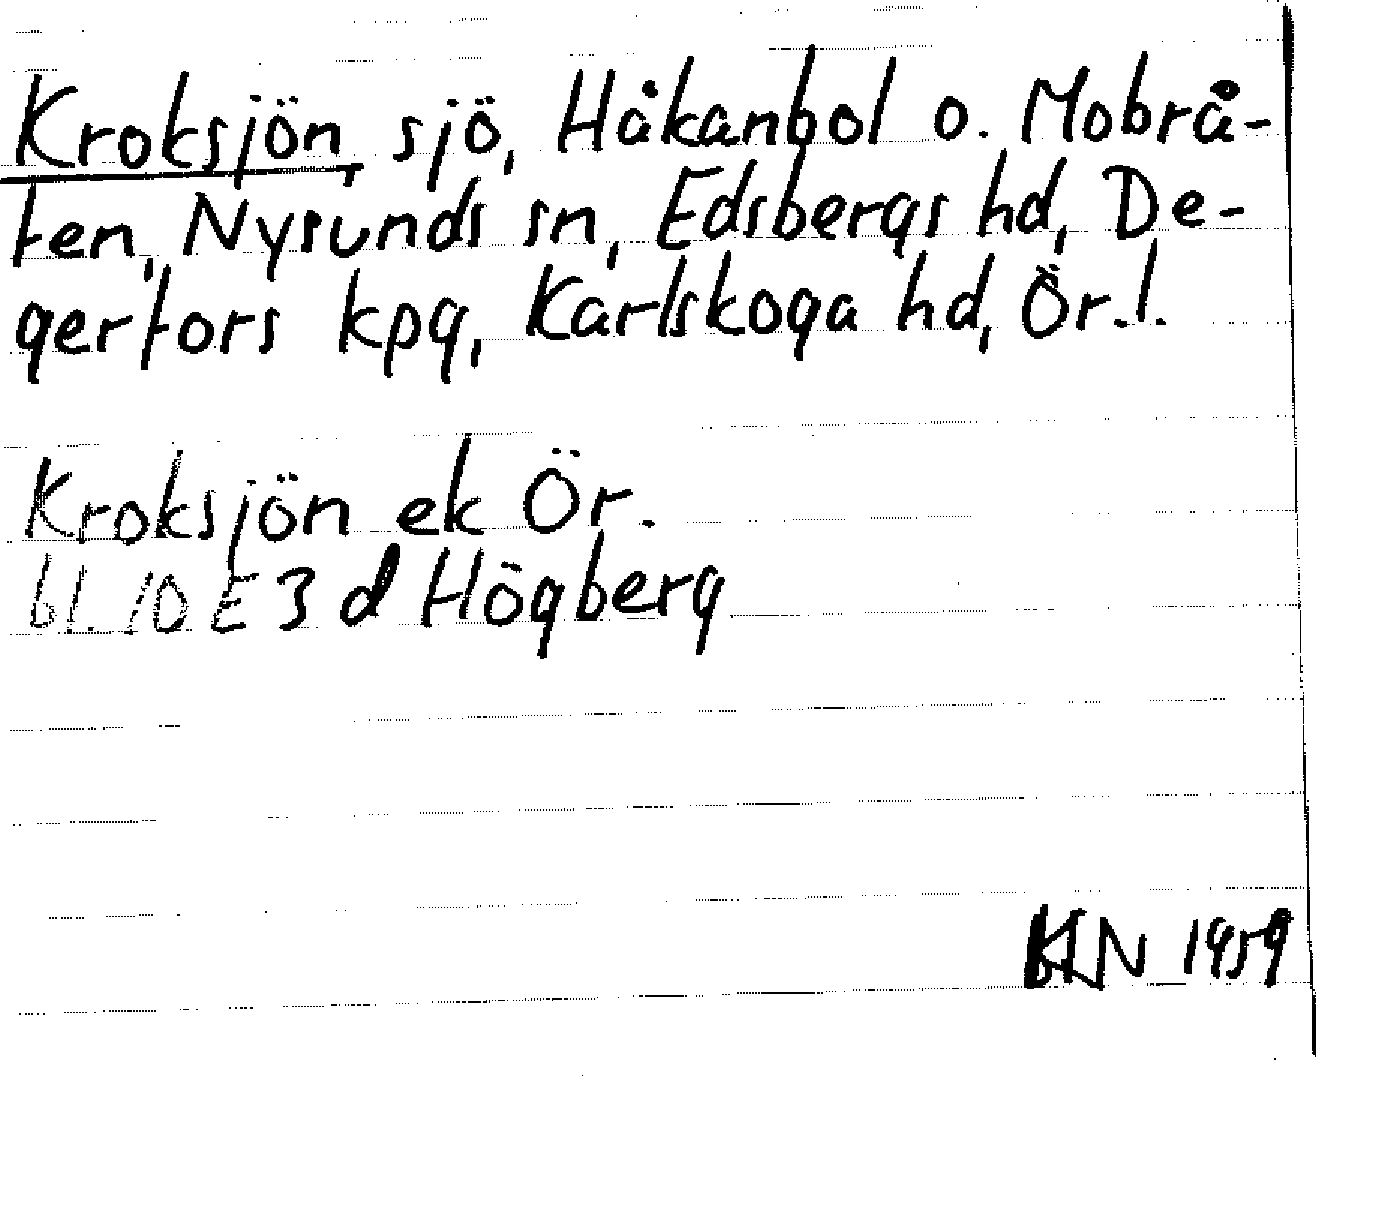 Kroksjön, sjö, Håkanbol o. Mobrå-
ten, Nysunds sn, Edsbergs hd, De-
gerfors kpg, Karlskoga hd, Ör. l.
Kroksjön ek Ör.
bl. 10 E 3 d Högberg
KLN 1959